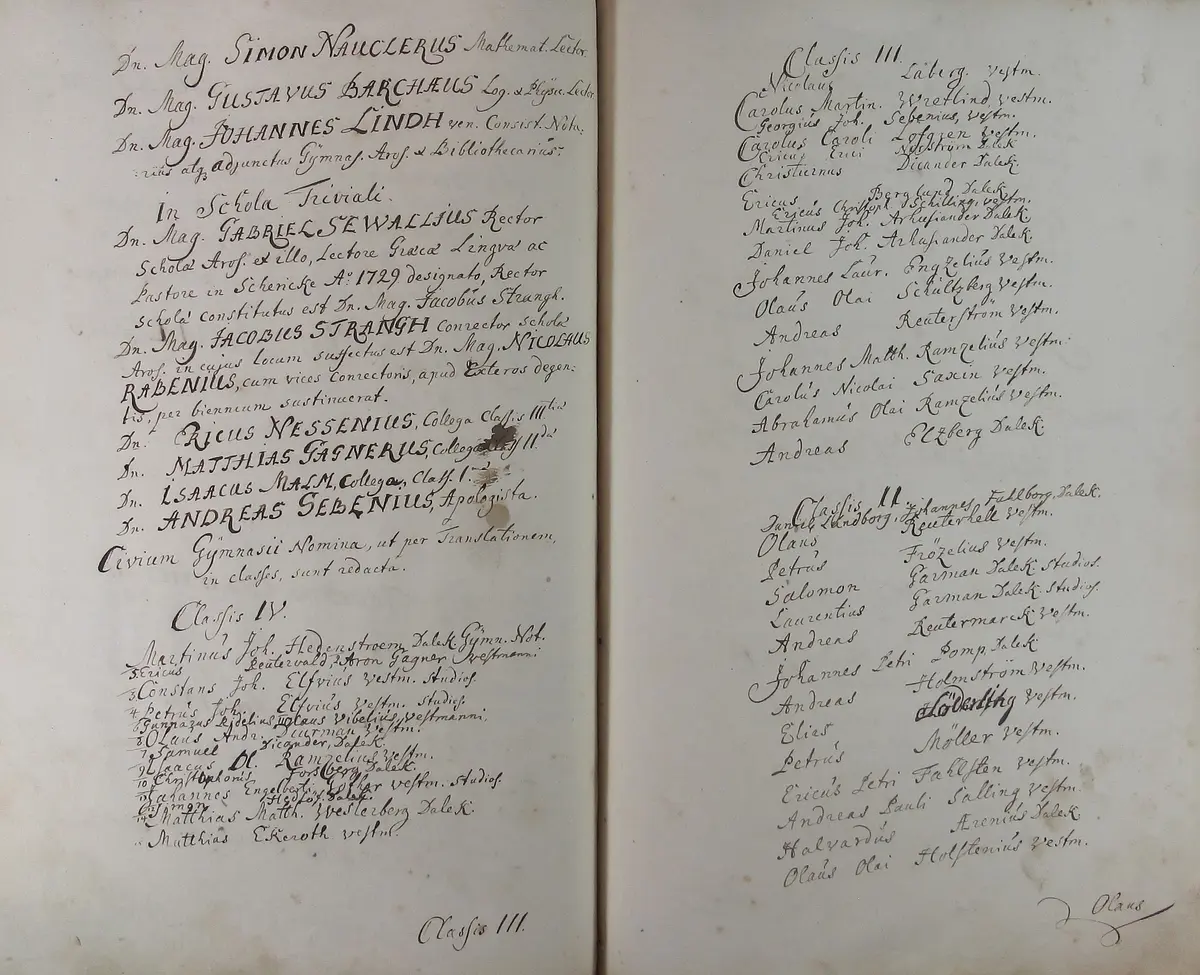 Dn. Mag. SIMON NAUCLERUS Mathemat. Lector.
Dn. Mag. GUSTAVUS BARCHÆUS Log. & Physic. Lector.
Dn. Mag. JOHANNES LINDH ven. Consist. Nota:
rius atq; adjunctus Gÿmnas. Aros. & Bibliothecarius.
In Schola Triviali.
Dn. Mag. GABRIEL SEWALLIUS Rector
Scholæ Aros. et illo, Lectore Græcæ Lingvæ ac
Pastore in Schericke Ao. 1729 designato, Rector
Scholæ constitutus est Dn. Mag. Jacobus Strangh.
Dn. Mag. JACOBUS STRANGH Conrector Scholæ
Aros. in cujus locum suffectus est Dn. Mag. NICOLAUS
RABENIUS, cum vices Conrectoris, apud Exteros degen:
tis, per biennium sustinuerat.
Dn. ERICUS NESSENIUS, Collega Classis IIItiæ
Dn. MATTHIAS GAGNERUS, Collega IIdæ
Dn. ISAACUS MALM, Collega, Class. I.
Dn. ANDREAS SEBENIUS, Apologista.
Civium Gÿmnasii Nomina, ut per Translationem,
in classes, sunt redacta.
Classis IV.
Martinus Joh. Hedenstroem Dalek. Gÿmn. Not.
Ericus Reuterwald, Aron Gagner Westmanni
Constans Joh. Elfvius Vestm. Studios.
Petrus Joh. Elfvius Vestm. Studios.
Gunnarus Olaus Vibelius, Vestmanni,
Olaus Andr. Diurman Vestm.
Samuel Dicander, Dalek.
Isaacus Ol. Ramzelius Vestm.
Christophorus Forsberg Dalek.
Johannes Engelberti Vestm. Studios.
Simon Dalek.
Matthias Matth. Westerberg Dalek.
Matthias Ekeroth Vestm.
Classis III.
Classis III.
Nicolaus Låberg. Vestm.
Carolus Martin. Wretlind Vestm.
Georgius Joh. Sebenius, Vestm.
Carolus Caroli Lofgren Vestm.
Ericus Erici Norström Dalek
Christiernus Dicander Dalek.
Ericus Berglund Dalek.
Ericus Christoph. Schilling, Vestm.
Martinus Joh. Arhusiander Dalek.
Daniel Joh. Arhusiander Dalek.
Johannes Laur. Engzelius Vestm.
Olaus Olai Schultzberg Vestm.
Andreas Reuterström Vestm.
Johannes Matth. Ramzelius Vestm:
Carolus Nicolai Saxin Vestm.
Abrahamus Olai Ramzelius Vestm.
Andreas Elzberg Dalek.
Classis II.
Daniel Lundborg, Johannes Fahlborg, Dalek.
Olaus Reuterhell Vestm.
Petrus Frözelius Vestm.
Salomon Garman Dalek. Studios.
Laurentius Garman Dalek. Studios.
Andreas Reutermarck Vestm.
Johannes Petri Pomp. Dalek
Andreas Holmström Vestm.
Elias Söderling Vestm.
Petrus Möller Vestm.
Ericus Petri Fahlsten Vestm.
Andreas Pauli Salling Vestm.
Halvardus Ærenius Dalek
Olaus Olai Holstenius Vestm.
Olaus